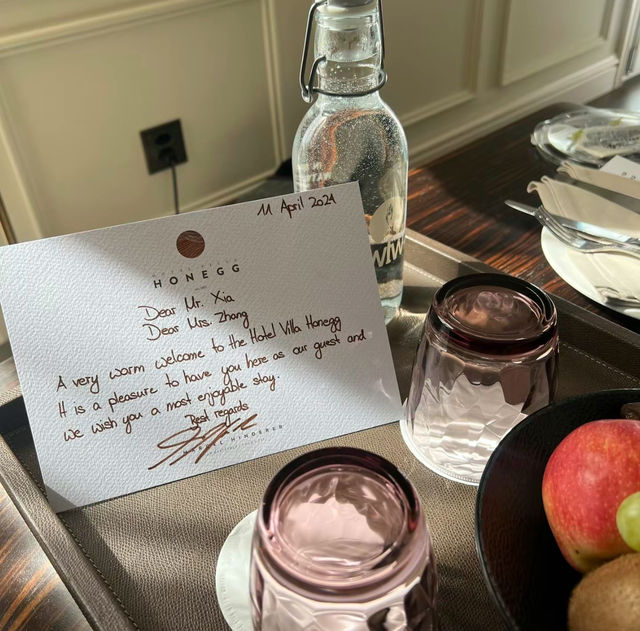 11 April 2024
HONEGG
Dear Mr. Xia
Dear Mrs. Zhang
A very warm welcome to the Hotel Villa Honegg
It is a pleasure to have you here as our guest and
we wish you a most enjoyable stay.
Best regards